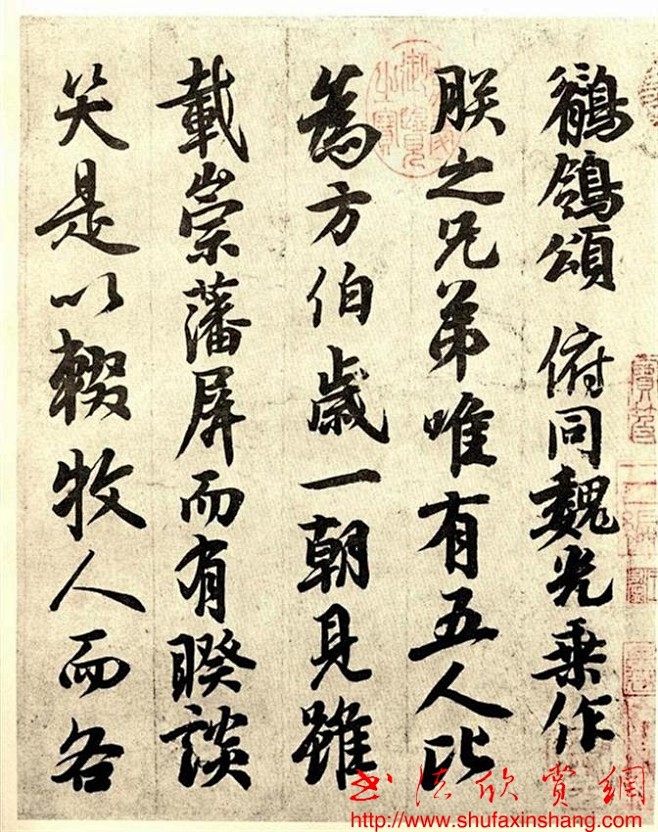 鶺鴒頌 俯同魏光乘作
朕之兄弟唯有五人比
為方伯歲一朝見雖
載崇藩屏而有睽談
笑是以輟牧人而各
書法欣賞網
http://www.shufaxinshang.com